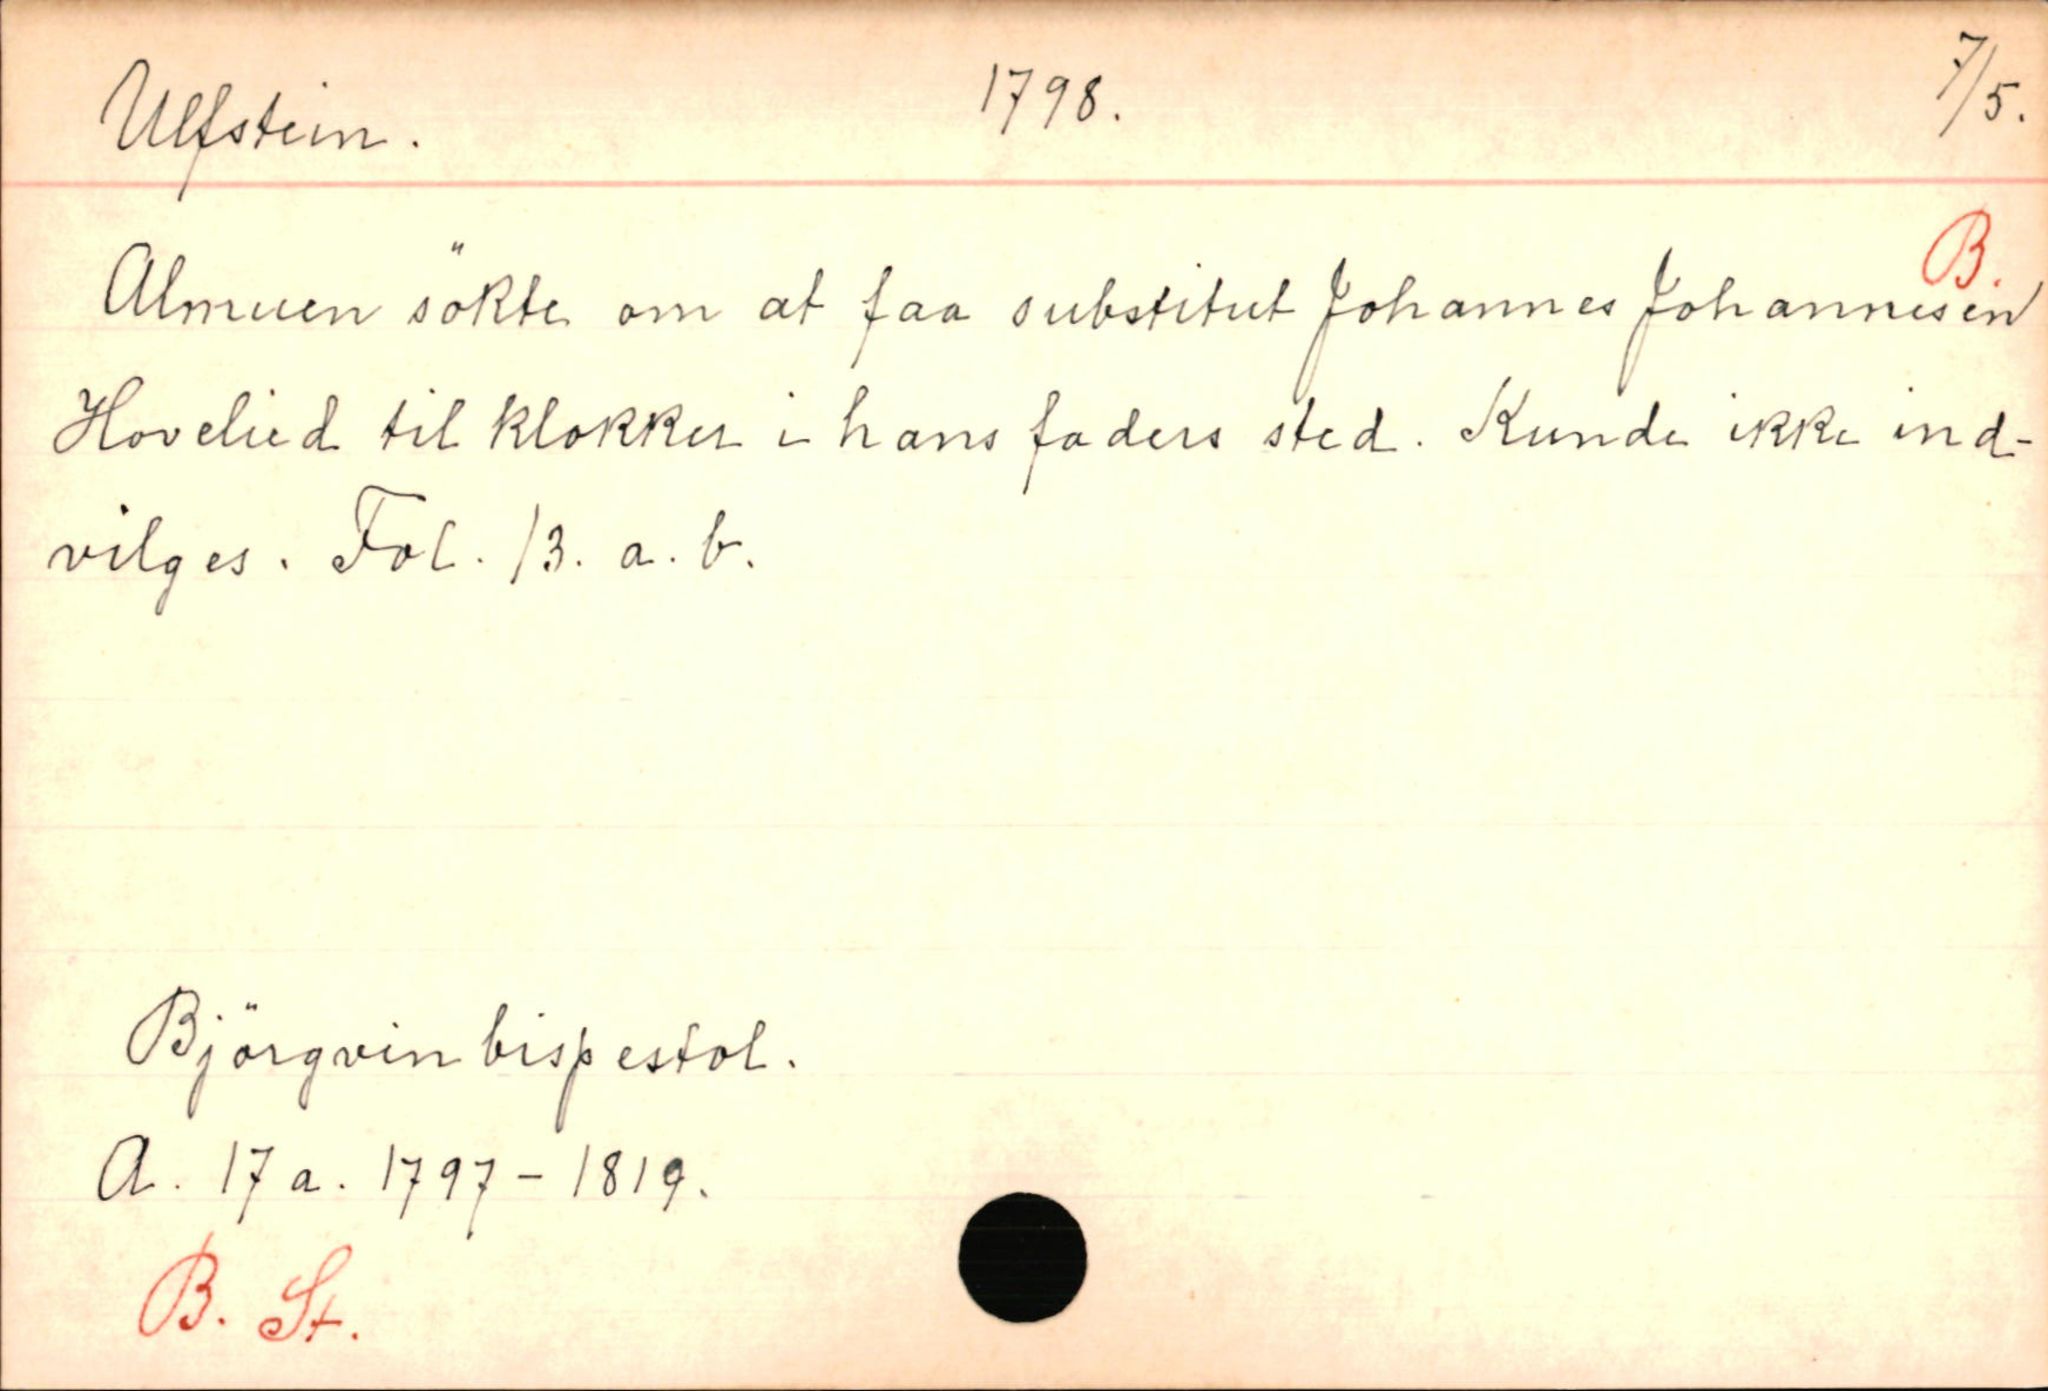 Ulfstein. 1798. 7/5.
B.
Almuen sökte om at faa substitut Johannes Johannesen
Hovelied til klokker i hans faders sted. Kunde ikke ind-
vilges. Fol. 13. a. b.
Björgvin bispestol.
A. 17 a. 1797 - 1819.
B. St.